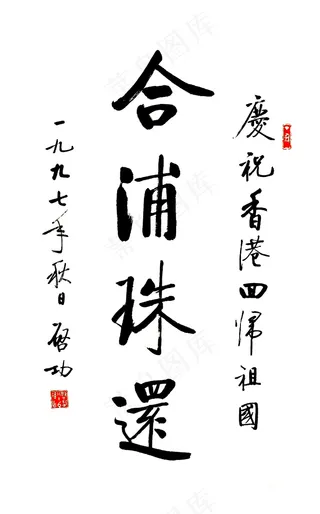 慶祝香港回歸祖國
合浦珠還
一九九七年秋日 啓功